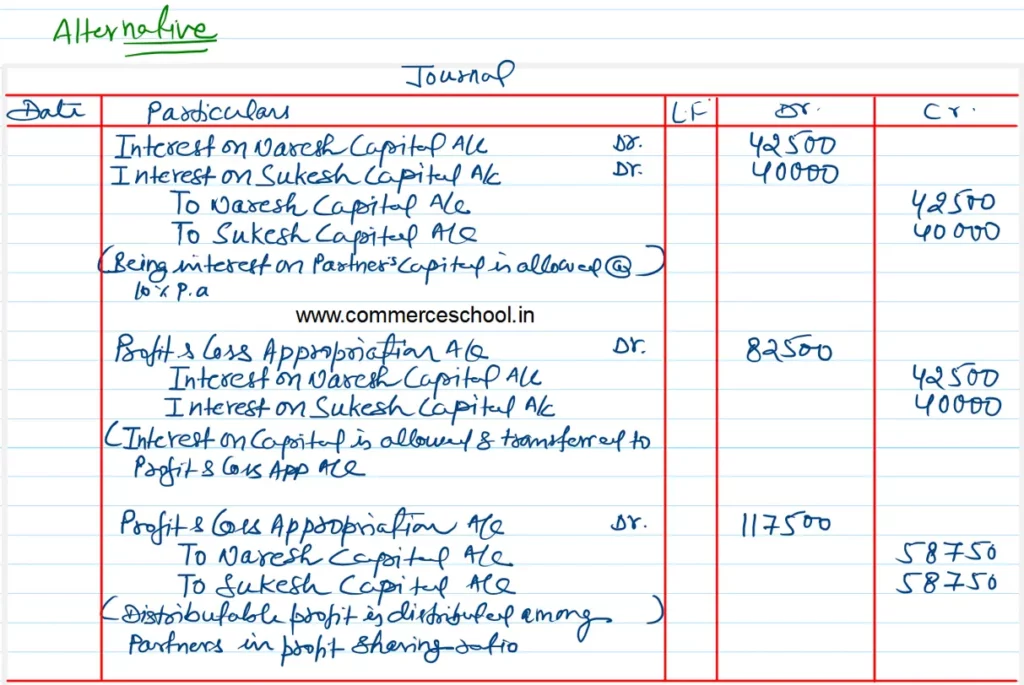 Alternative
Journal
Date Particulars LF Dr. Cr.
Interest on Naresh Capital A/c Dr. 42500
Interest on Sukesh Capital A/c Dr. 40000
To Naresh Capital A/c 42500
To Sukesh Capital A/c 40000
(Being interest on Partner's Capital is allowed @
10% P.a )
www.commerceschool.in
Profit & Loss Appropriation A/c Dr. 82500
Interest on Naresh Capital A/c 42500
Interest on Sukesh Capital A/c 40000
(Interest on Capital is allowed & transferred to
Profit & Loss App A/c
Profit & Loss Appropriation A/c Dr. 117500
To Naresh Capital A/c 58750
To Sukesh Capital A/c 58750
(Distributable profit is distributed among
Partners in profit sharing ratio )